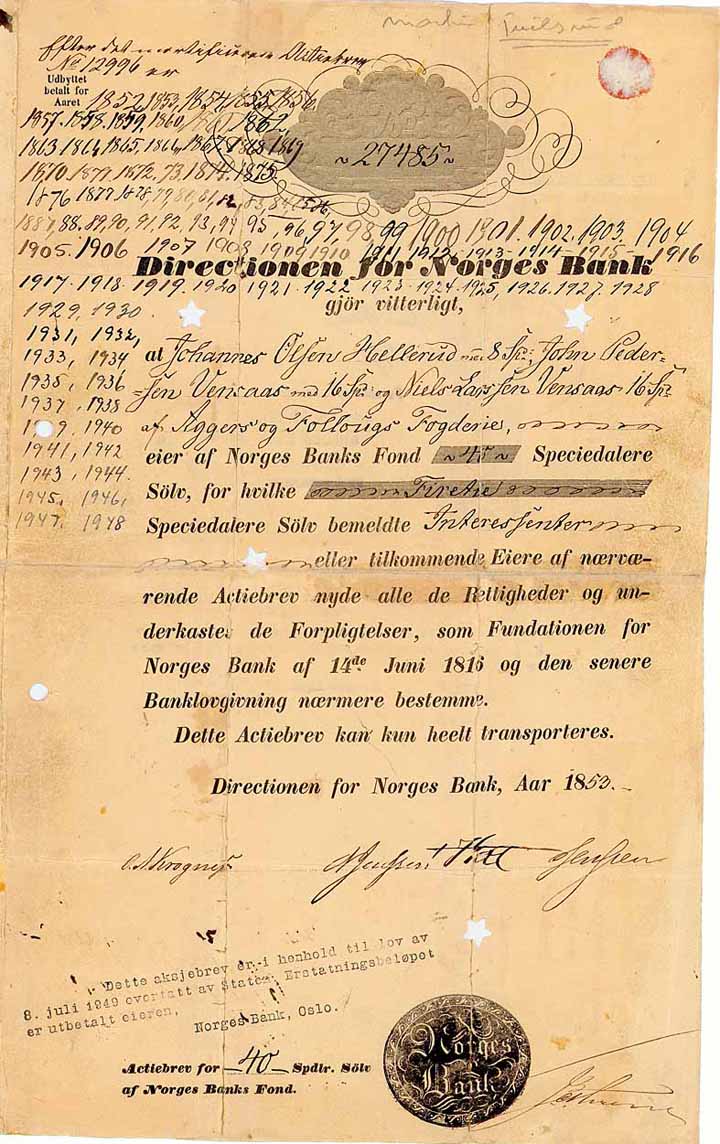 Efter det mortificerede Actiebrev
No 12996 er
Udbyttet
betalt for
Aaret
1852, 1853, 1854, 1855, 1856.
1857. 1858. 1859, 1860, 1861 1862,
1863 1864, 1865, 1866, 1867 1868 1869
1870. 1871. 1872, 73. 1874. 1875.
1876 1877 1878, 79, 80, 81, 82, 83, 84, 85, 86,
1887, 88. 89, 90, 91, 92, 93, 94 95, 96, 97, 98, 99 1900 1901. 1902. 1903. 1904
~ 27485 ~
1905. 1906 1907 1908 1909 1910 1911. 1912. 1913. 1914. 1915. 1916
Directionen for Norges Bank
1917. 1918. 1919. 1920 1921. 1922 1923. 1924. 1925, 1926. 1927. 1928
gjör vitterligt,
1929, 1930.
1931, 1932,
1933, 1934
1935, 1936
1937, 1938
1939. 1940
1941, 1942
1943, 1944.
1945, 1946,
1947. 1948
at Johannes Olsen Hellerud med 8 Spd; John Peder-
=sen Vensaas med 16 Spd og Niels Larssen Vensaas 16 Spd
af Aggers og Follougs Fogderie,
eier af Norges Banks Fond ~ 40 ~ Speciedalere
Sölv, for hvilke Firetie
Speciedalere Sölv bemeldte Interessenter
eller tilkommende Eiere af nærvæ-
rende Actiebrev nyde alle de Rettigheder og un-
derkastes de Forpligtelser, som Fundationen for
Norges Bank af 14de Juni 1816 og den senere
Banklovgivning nærmere bestemme.
Dette Actiebrev kan kun heelt transporteres.
Directionen for Norges Bank, Aar 1853.
Dette aksjebrev er i henhold til lov av
8. juli 1949 overtatt av Staten. Erstatningsbeløpet
er utbetalt eieren.
Norges Bank, Oslo.
Actiebrev for 40 Spdlr. Sölv
af Norges Banks Fond.
Norges
Bank